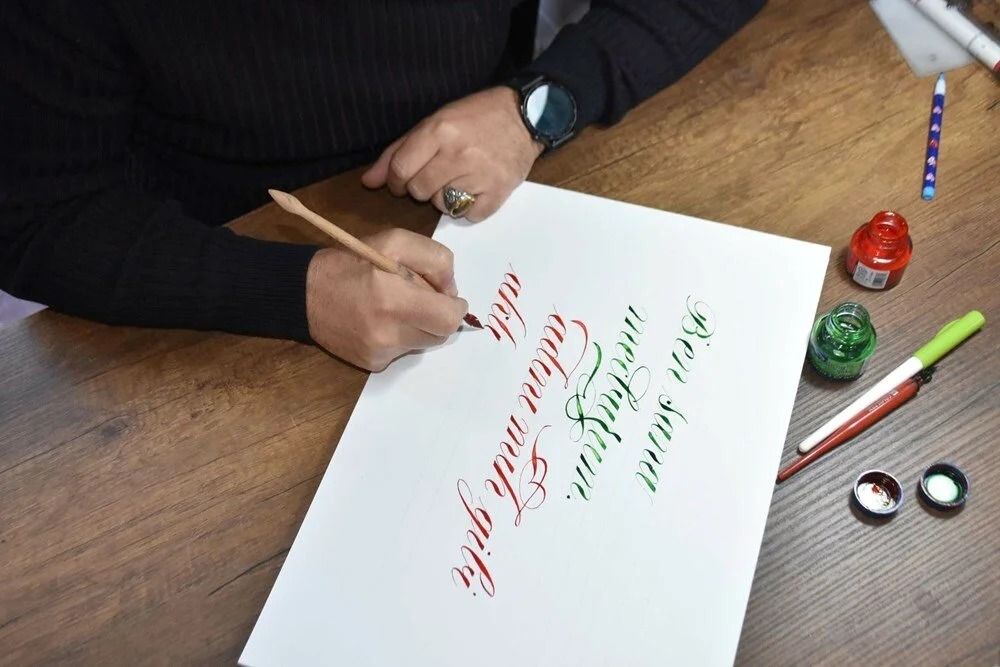 Ben sana
mecburum.
adını mıh gibi
aklı